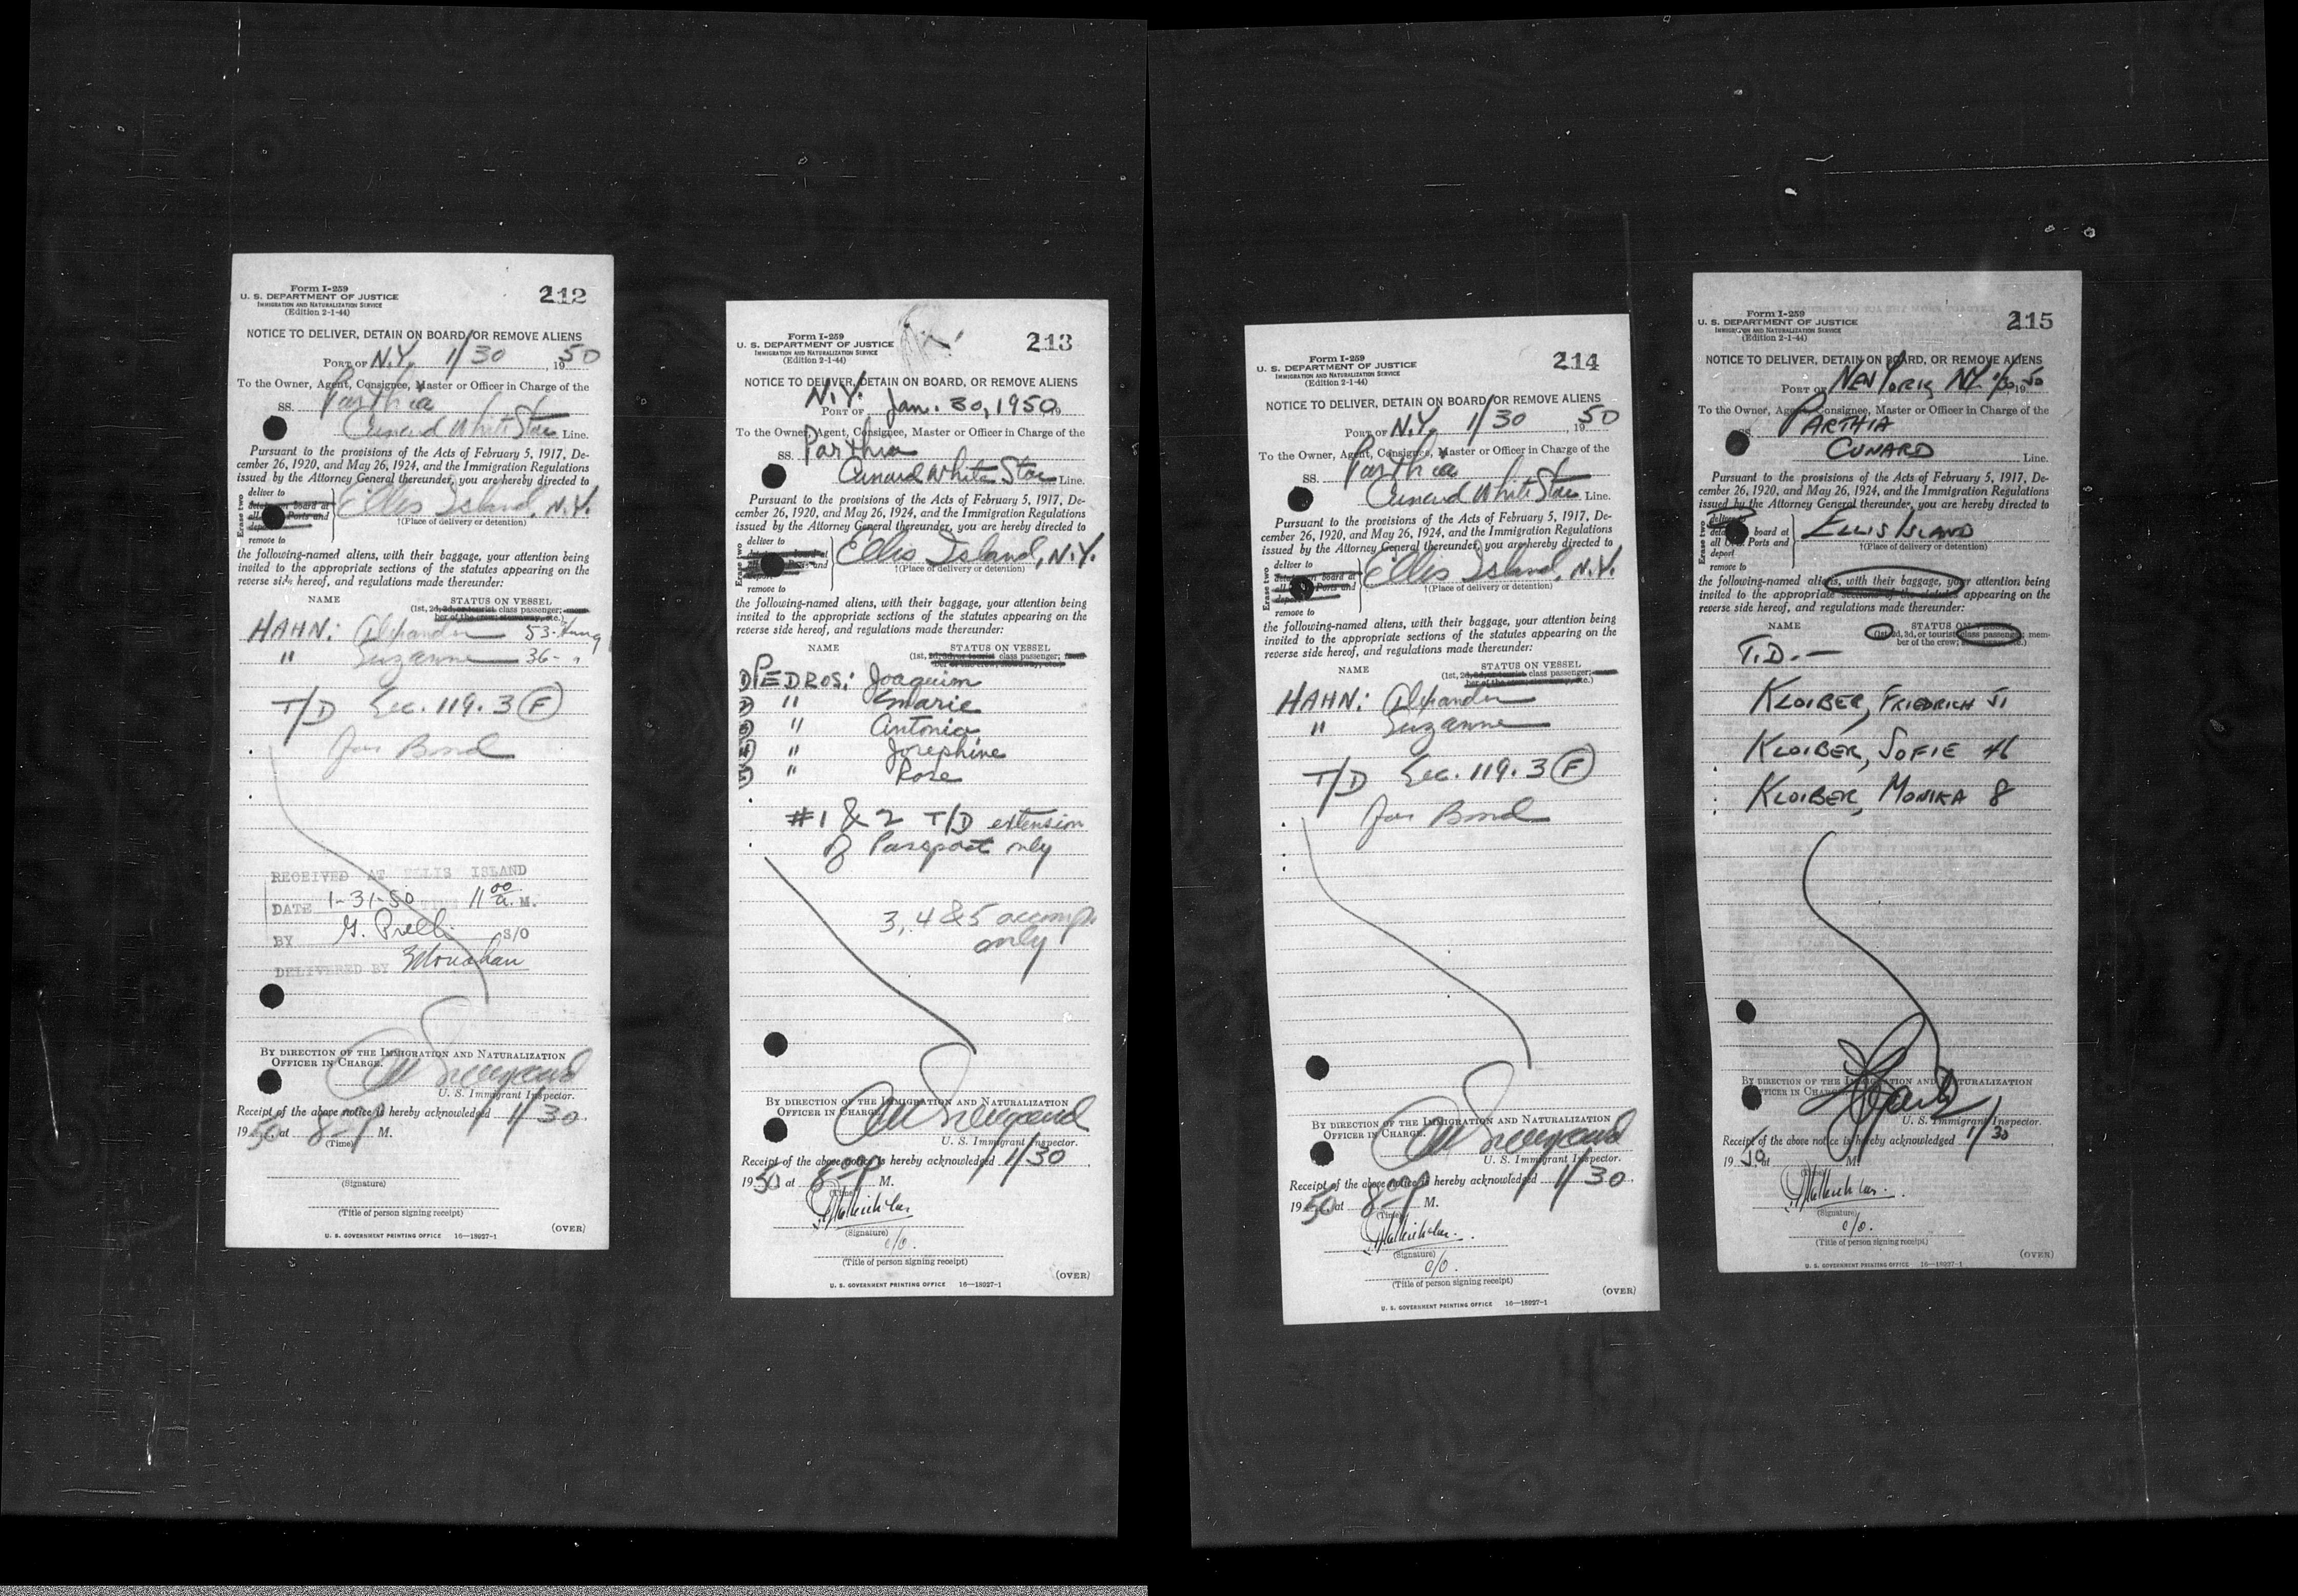 Form I-259
U. S. DEPARTMENT OF JUSTICE
IMMIGRATION AND NATURALIZATION SERVICE
(Edition 2-1-44)
212
NOTICE TO DELIVER, DETAIN ON BOARD, OR REMOVE ALIENS
PORT OF N.Y. 1/30, 1950
To the Owner, Agent, Consignee, Master or Officer in Charge of the
SS. Parthia
Cunard White Star Line.
Pursuant to the provisions of the Acts of February 5, 1917, De-
cember 26, 1920, and May 26, 1924, and the Immigration Regulations
issued by the Attorney General thereunder, you are hereby directed to
Erase two
deliver to
detain on board at
all Ports and
deport
remove to
Ellis Island, N.Y.
†(Place of delivery or detention)
the following-named aliens, with their baggage, your attention being
invited to the appropriate sections of the statutes appearing on the
reverse side hereof, and regulations made thereunder:
NAME STATUS ON VESSEL
(1st, 2d, 3d, or tourist class passenger; mem-
ber of the crew, stowaway, etc.)
HAHN: Alexander 53- Hung
" Suzanne 36- "
T/D Sec. 119.3 (F)
for Bond
RECEIVED AT ELLIS ISLAND
DATE 1-31-50 11 00 A. M.
BY G. S/O
DELIVERED BY Monahan
BY DIRECTION OF THE IMMIGRATION AND NATURALIZATION
OFFICER IN CHARGE.
U. S. Immigrant Inspector.
Receipt of the above notice is hereby acknowledged 1/30
1950 at 8 P M.
(Time)
(Signature)
(Title of person signing receipt)
(OVER)
U. S. GOVERNMENT PRINTING OFFICE 16—18927-1
Form I-259
U. S. DEPARTMENT OF JUSTICE
IMMIGRATION AND NATURALIZATION SERVICE
(Edition 2-1-44)
213
NOTICE TO DELIVER, DETAIN ON BOARD, OR REMOVE ALIENS
N.Y.
PORT OF Jan. 30, 1950 19
To the Owner, Agent, Consignee, Master or Officer in Charge of the
SS. Parthia
Cunard White Star Line.
Pursuant to the provisions of the Acts of February 5, 1917, De-
cember 26, 1920, and May 26, 1924, and the Immigration Regulations
issued by the Attorney General thereunder, you are hereby directed to
Erase two
deliver to
detain on board at
all Ports and
deport
remove to
Ellis Island, N.Y.
†(Place of delivery or detention)
the following-named aliens, with their baggage, your attention being
invited to the appropriate sections of the statutes appearing on the
reverse side hereof, and regulations made thereunder:
NAME STATUS ON VESSEL
(1st, 2d, 3d, or tourist class passenger; mem-
ber of the crew, stowaway, etc.)
1) PEDROS: Joaquim
2) " Marie
3) " Antonia
4) " Josephine
5) " Rose
#1 & 2 T/D extension
of Passport only
3, 4 & 5 accomp.
only
BY DIRECTION OF THE IMMIGRATION AND NATURALIZATION
OFFICER IN CHARGE.
U. S. Immigrant Inspector.
Receipt of the above notice is hereby acknowledged 1/30
1950 at 8 P M.
(Time)
(Signature)
c/o.
(Title of person signing receipt)
(OVER)
U. S. GOVERNMENT PRINTING OFFICE 16—18927-1
Form I-259
U. S. DEPARTMENT OF JUSTICE
IMMIGRATION AND NATURALIZATION SERVICE
(Edition 2-1-44)
214
NOTICE TO DELIVER, DETAIN ON BOARD, OR REMOVE ALIENS
PORT OF N.Y. 1/30, 1950
To the Owner, Agent, Consignee, Master or Officer in Charge of the
SS. Parthia
Cunard White Star Line.
Pursuant to the provisions of the Acts of February 5, 1917, De-
cember 26, 1920, and May 26, 1924, and the Immigration Regulations
issued by the Attorney General thereunder, you are hereby directed to
Erase two
deliver to
detain on board at
all Ports and
deport
remove to
Ellis Island, N.Y.
†(Place of delivery or detention)
the following-named aliens, with their baggage, your attention being
invited to the appropriate sections of the statutes appearing on the
reverse side hereof, and regulations made thereunder:
NAME STATUS ON VESSEL
(1st, 2d, 3d, or tourist class passenger; mem-
ber of the crew, stowaway, etc.)
HAHN: Alexander
" Suzanne
T/D Sec. 119.3 (F)
for Bond
BY DIRECTION OF THE IMMIGRATION AND NATURALIZATION
OFFICER IN CHARGE.
U. S. Immigrant Inspector.
Receipt of the above notice is hereby acknowledged 1/30
1950 at 8 P M.
(Time)
(Signature)
c/o.
(Title of person signing receipt)
(OVER)
U. S. GOVERNMENT PRINTING OFFICE 16—18927-1
Form I-259
U. S. DEPARTMENT OF JUSTICE
IMMIGRATION AND NATURALIZATION SERVICE
(Edition 2-1-44)
215
NOTICE TO DELIVER, DETAIN ON BOARD, OR REMOVE ALIENS
PORT OF NEW YORK, NY. 1/30, 1950
To the Owner, Agent, Consignee, Master or Officer in Charge of the
SS. PARTHIA
CUNARD Line.
Pursuant to the provisions of the Acts of February 5, 1917, De-
cember 26, 1920, and May 26, 1924, and the Immigration Regulations
issued by the Attorney General thereunder, you are hereby directed to
Erase two
deliver to
detain on board at
all U. S. Ports and
deport
remove to
ELLIS ISLAND
†(Place of delivery or detention)
the following-named aliens, with their baggage, your attention being
invited to the appropriate sections of the statutes appearing on the
reverse side hereof, and regulations made thereunder:
NAME STATUS ON VESSEL
(1st, 2d, 3d, or tourist class passenger; mem-
ber of the crew, stowaway, etc.)
T.D.—
KLOIBER, FRIEDRICH 51
KLOIBER, SOFIE 46
KLOIBER, MONIKA 8
BY DIRECTION OF THE IMMIGRATION AND NATURALIZATION
OFFICER IN CHARGE.
U. S. Immigrant Inspector.
Receipt of the above notice is hereby acknowledged 1/30
1950 at M.
(Time)
(Signature)
c/o.
(Title of person signing receipt)
(OVER)
U. S. GOVERNMENT PRINTING OFFICE 16—18927-1